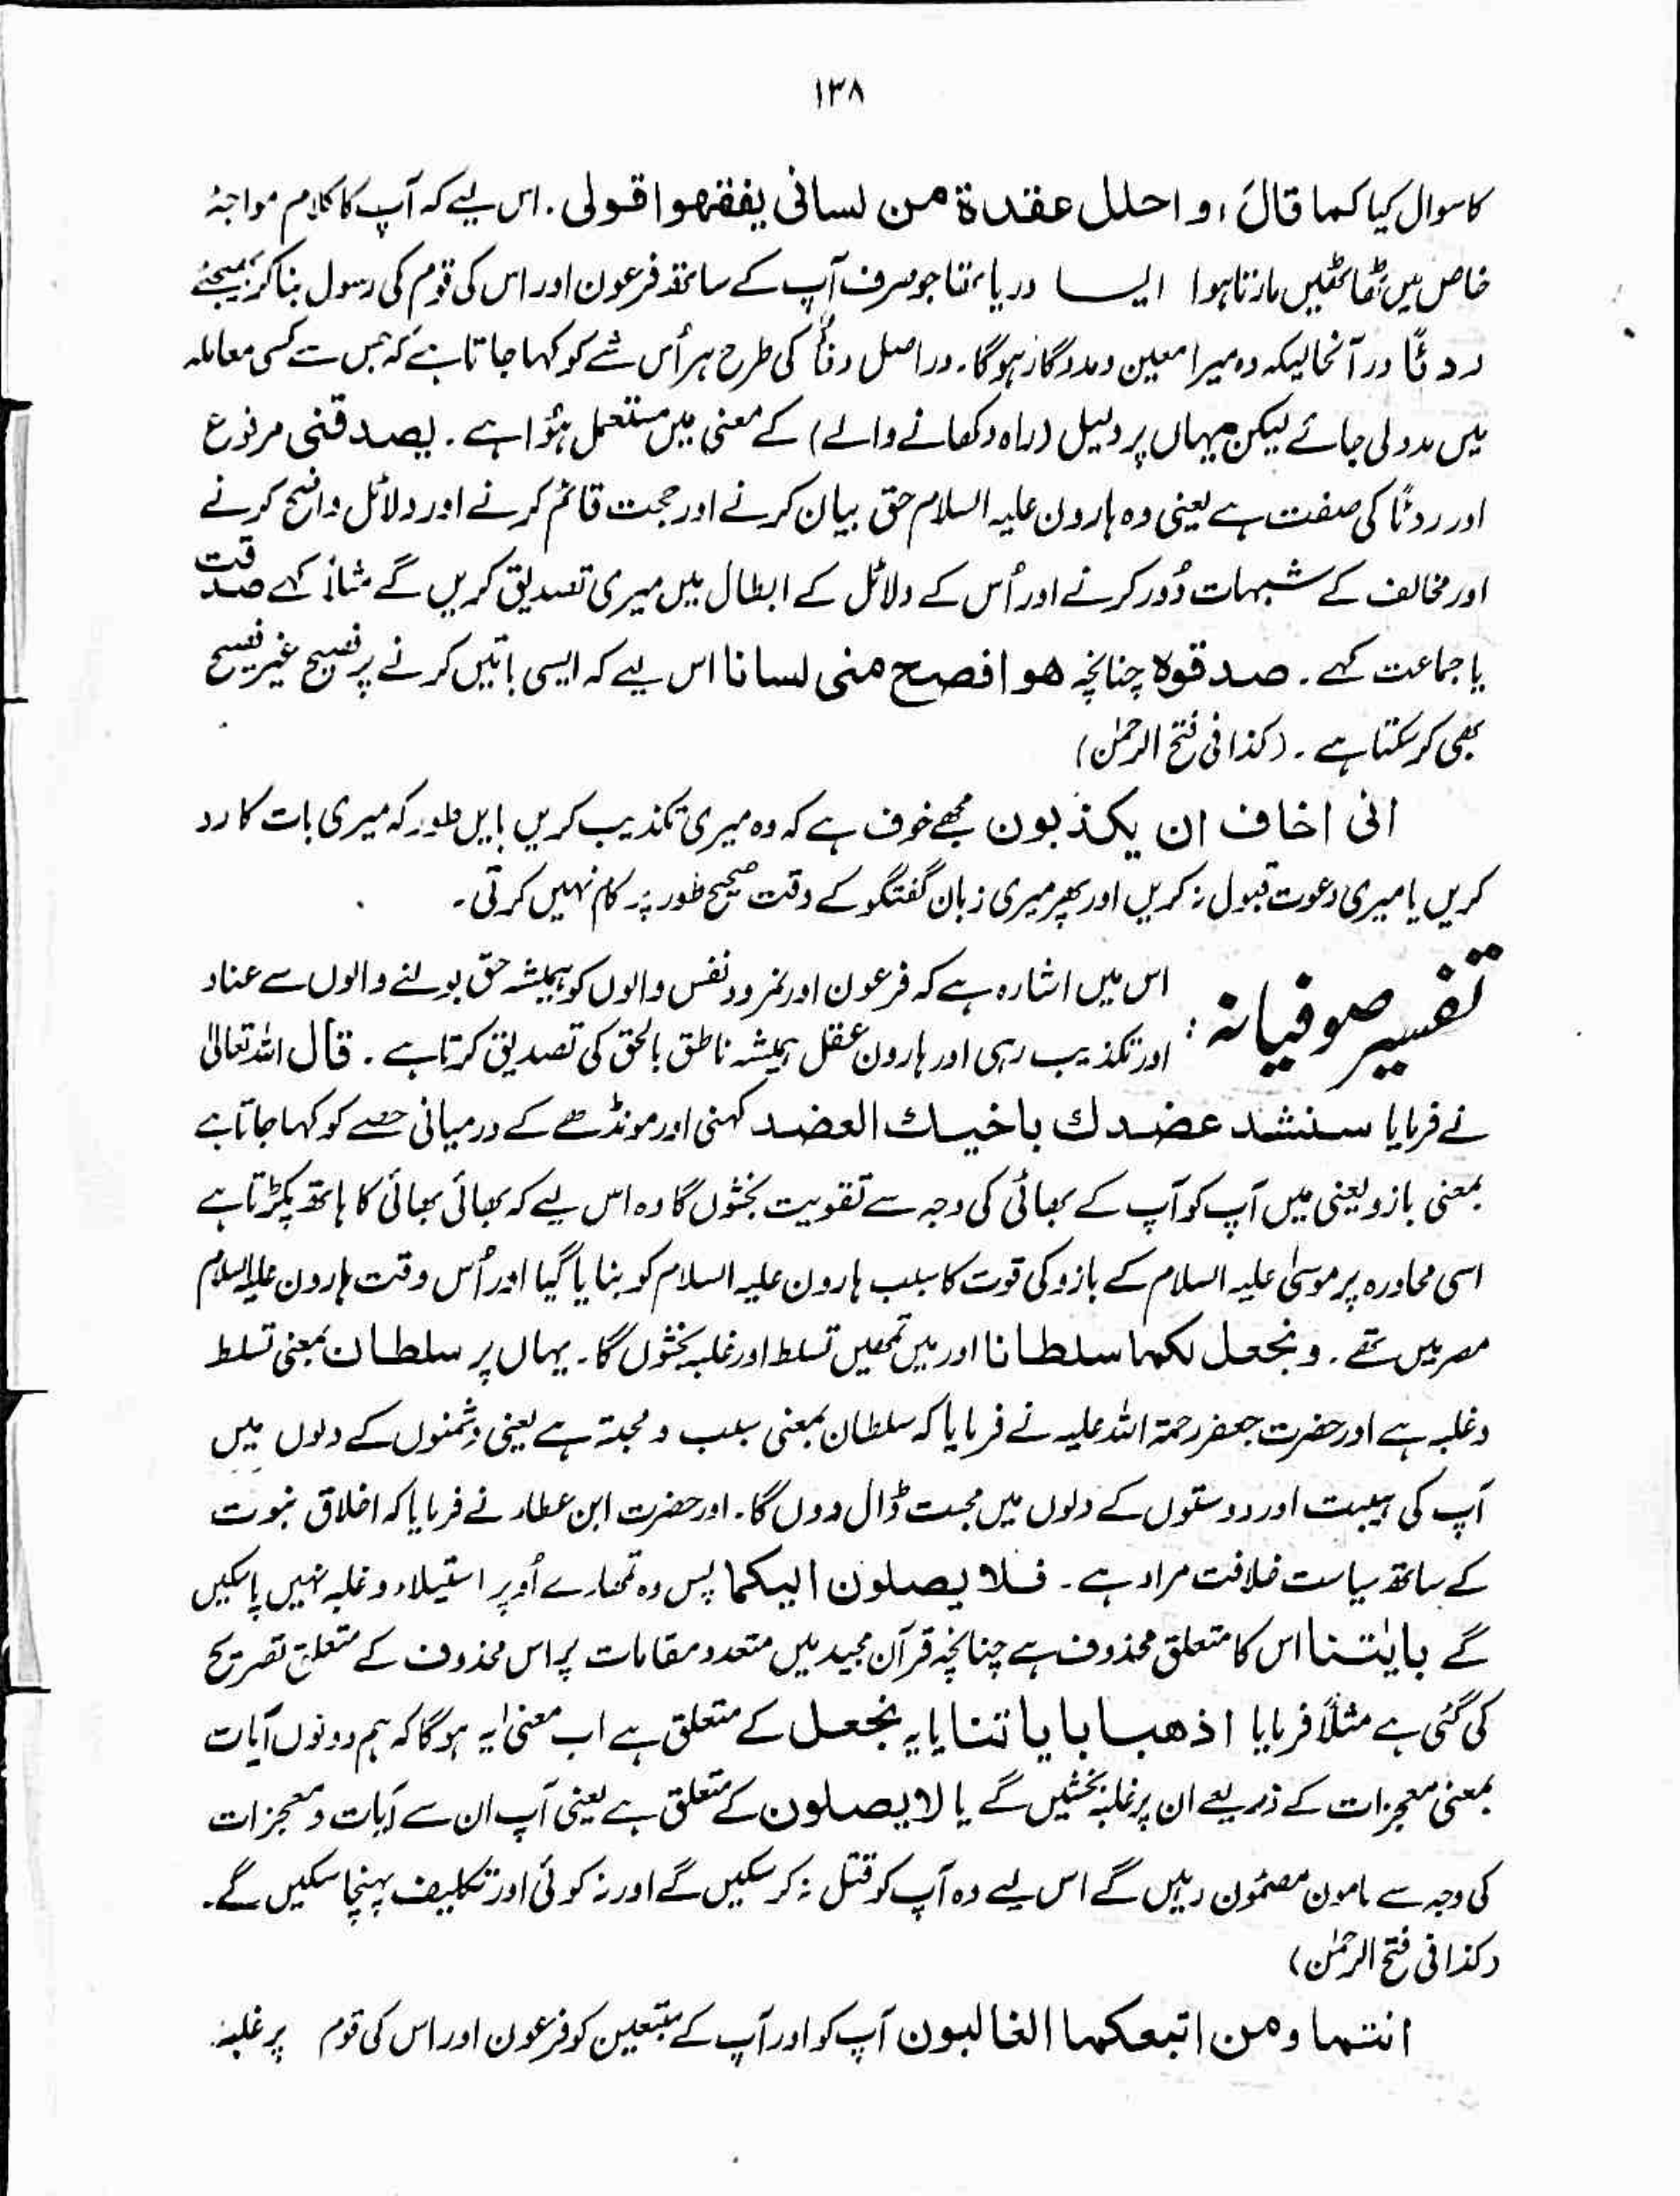 ۱۳۸
کا سوال کیا کما قالَ، و احلل عقدة من لسانی یفقھوا قولی. اس لیے کہ آپ کا کلام مواجۂ
خاص میں ٹھاٹھیں مارتا ہوا ایسا دریا تھا جو صرف آپ کے ساتھ فرعون اور اس کی قوم کی رسول بنا کر بھیجئے
ردئًا در آنحالیکہ وہ میرا معین و مددگار ہوگا۔ دراصل دفأ کی طرح ہر اُس شے کو کہا جاتا ہے کہ جس سے کسی معاملہ
میں مدد لی جائے لیکن یہاں پر دلیل (راہ دکھانے والے) کے معنی میں مستعمل ہُوا ہے۔ یصدقنی مرفوع
اور ردئًا کی صفت ہے یعنی وہ ہارون علیہ السلام حق بیان کرنے اور حجت قائم کرنے اور دلائل واضح کرنے
اور مخالف کے شبہات دُور کرنے اور اُس کے دلائل کے ابطال میں میری تصدیق کریں گے مثلاً کہے صدقت
یا جماعت کہے۔ صدقوہ چنانچہ ھو افصح منی لسانا اس لیے کہ ایسی باتیں کرنے پر فصیح غیر فصیح
بھی کر سکتا ہے۔ (کذا فی فتح الرحمٰن)
انی اخاف ان یکذبون مجھے خوف ہے کہ وہ میری تکذیب کریں بایں طور کہ میری بات کا رد
کریں یا میری دعوت قبول نہ کریں اور پھر میری زبان گفتگو کے وقت صحیح طور پر کام نہیں کرتی۔
تفسیر صوفیانہ : اس میں اشارہ ہے کہ فرعون اور نمرود نفس والوں کو ہمیشہ حق بولنے والوں سے عناد
اور تکذیب رہی اور ہارون عقل ہمیشہ ناطق بالحق کی تصدیق کرتا ہے۔ قال اللہ تعالیٰ
نے فرمایا سنشد عضدك باخیك العضد کہنی اور مونڈھے کے درمیانی حصے کو کہا جاتا ہے
بمعنی بازو یعنی میں آپ کو آپ کے بھائی کی وجہ سے تقویت بخشوں گا وہ اس لیے کہ بھائی بھائی کا ہاتھ پکڑتا ہے
اسی محاورہ پر موسیٰ علیہ السلام کے بازو کی قوت کا سبب ہارون علیہ السلام کو بنایا گیا اور اُس وقت ہارون علیہ السلام
مصر میں تھے۔ ونجعل لکما سلطانا اور میں تمھیں تسلط اور غلبہ بخشوں گا۔ یہاں پر سلطان بمعنی تسلط
وغلبہ ہے اور حضرت جعفر رحمۃ اللہ علیہ نے فرمایا کہ سلطان بمعنی سبب و محبۃ ہے یعنی دشمنوں کے دلوں میں
آپ کی ہیبت اور دوستوں کے دلوں میں محبت ڈال دوں گا۔ اور حضرت ابن عطاء نے فرمایا کہ اخلاق نبوت
کے ساتھ سیاست خلافت مراد ہے۔ فلا یصلون الیکما پس وہ تمھارے اُوپر استیلاء و غلبہ نہیں پا سکیں
گے بایٰتنا اس کا متعلق محذوف ہے چنانچہ قرآن مجید میں متعدد مقامات پر اس محذوف کے متعلق تصریح
کی گئی ہے مثلاً فرمایا اذھبا بایاتنا یا یہ نجعل کے متعلق ہے اب معنیٰ یہ ہوگا کہ ہم دونوں آیات
بمعنی معجزات کے ذریعے ان پر غلبہ بخشیں گے یا لا یصلون کے متعلق ہے یعنی آپ ان سے آیات و معجزات
کی وجہ سے مامون مصئون رہیں گے اس لیے وہ آپ کو قتل نہ کر سکیں گے اور نہ کوئی اور تکلیف پہنچا سکیں گے۔
(کذا فی فتح الرحمٰن)
انتما ومن اتبعکما الغالبون آپ کو اور آپ کے متبعین کو فرعون اور اس کی قوم پر غلبہ